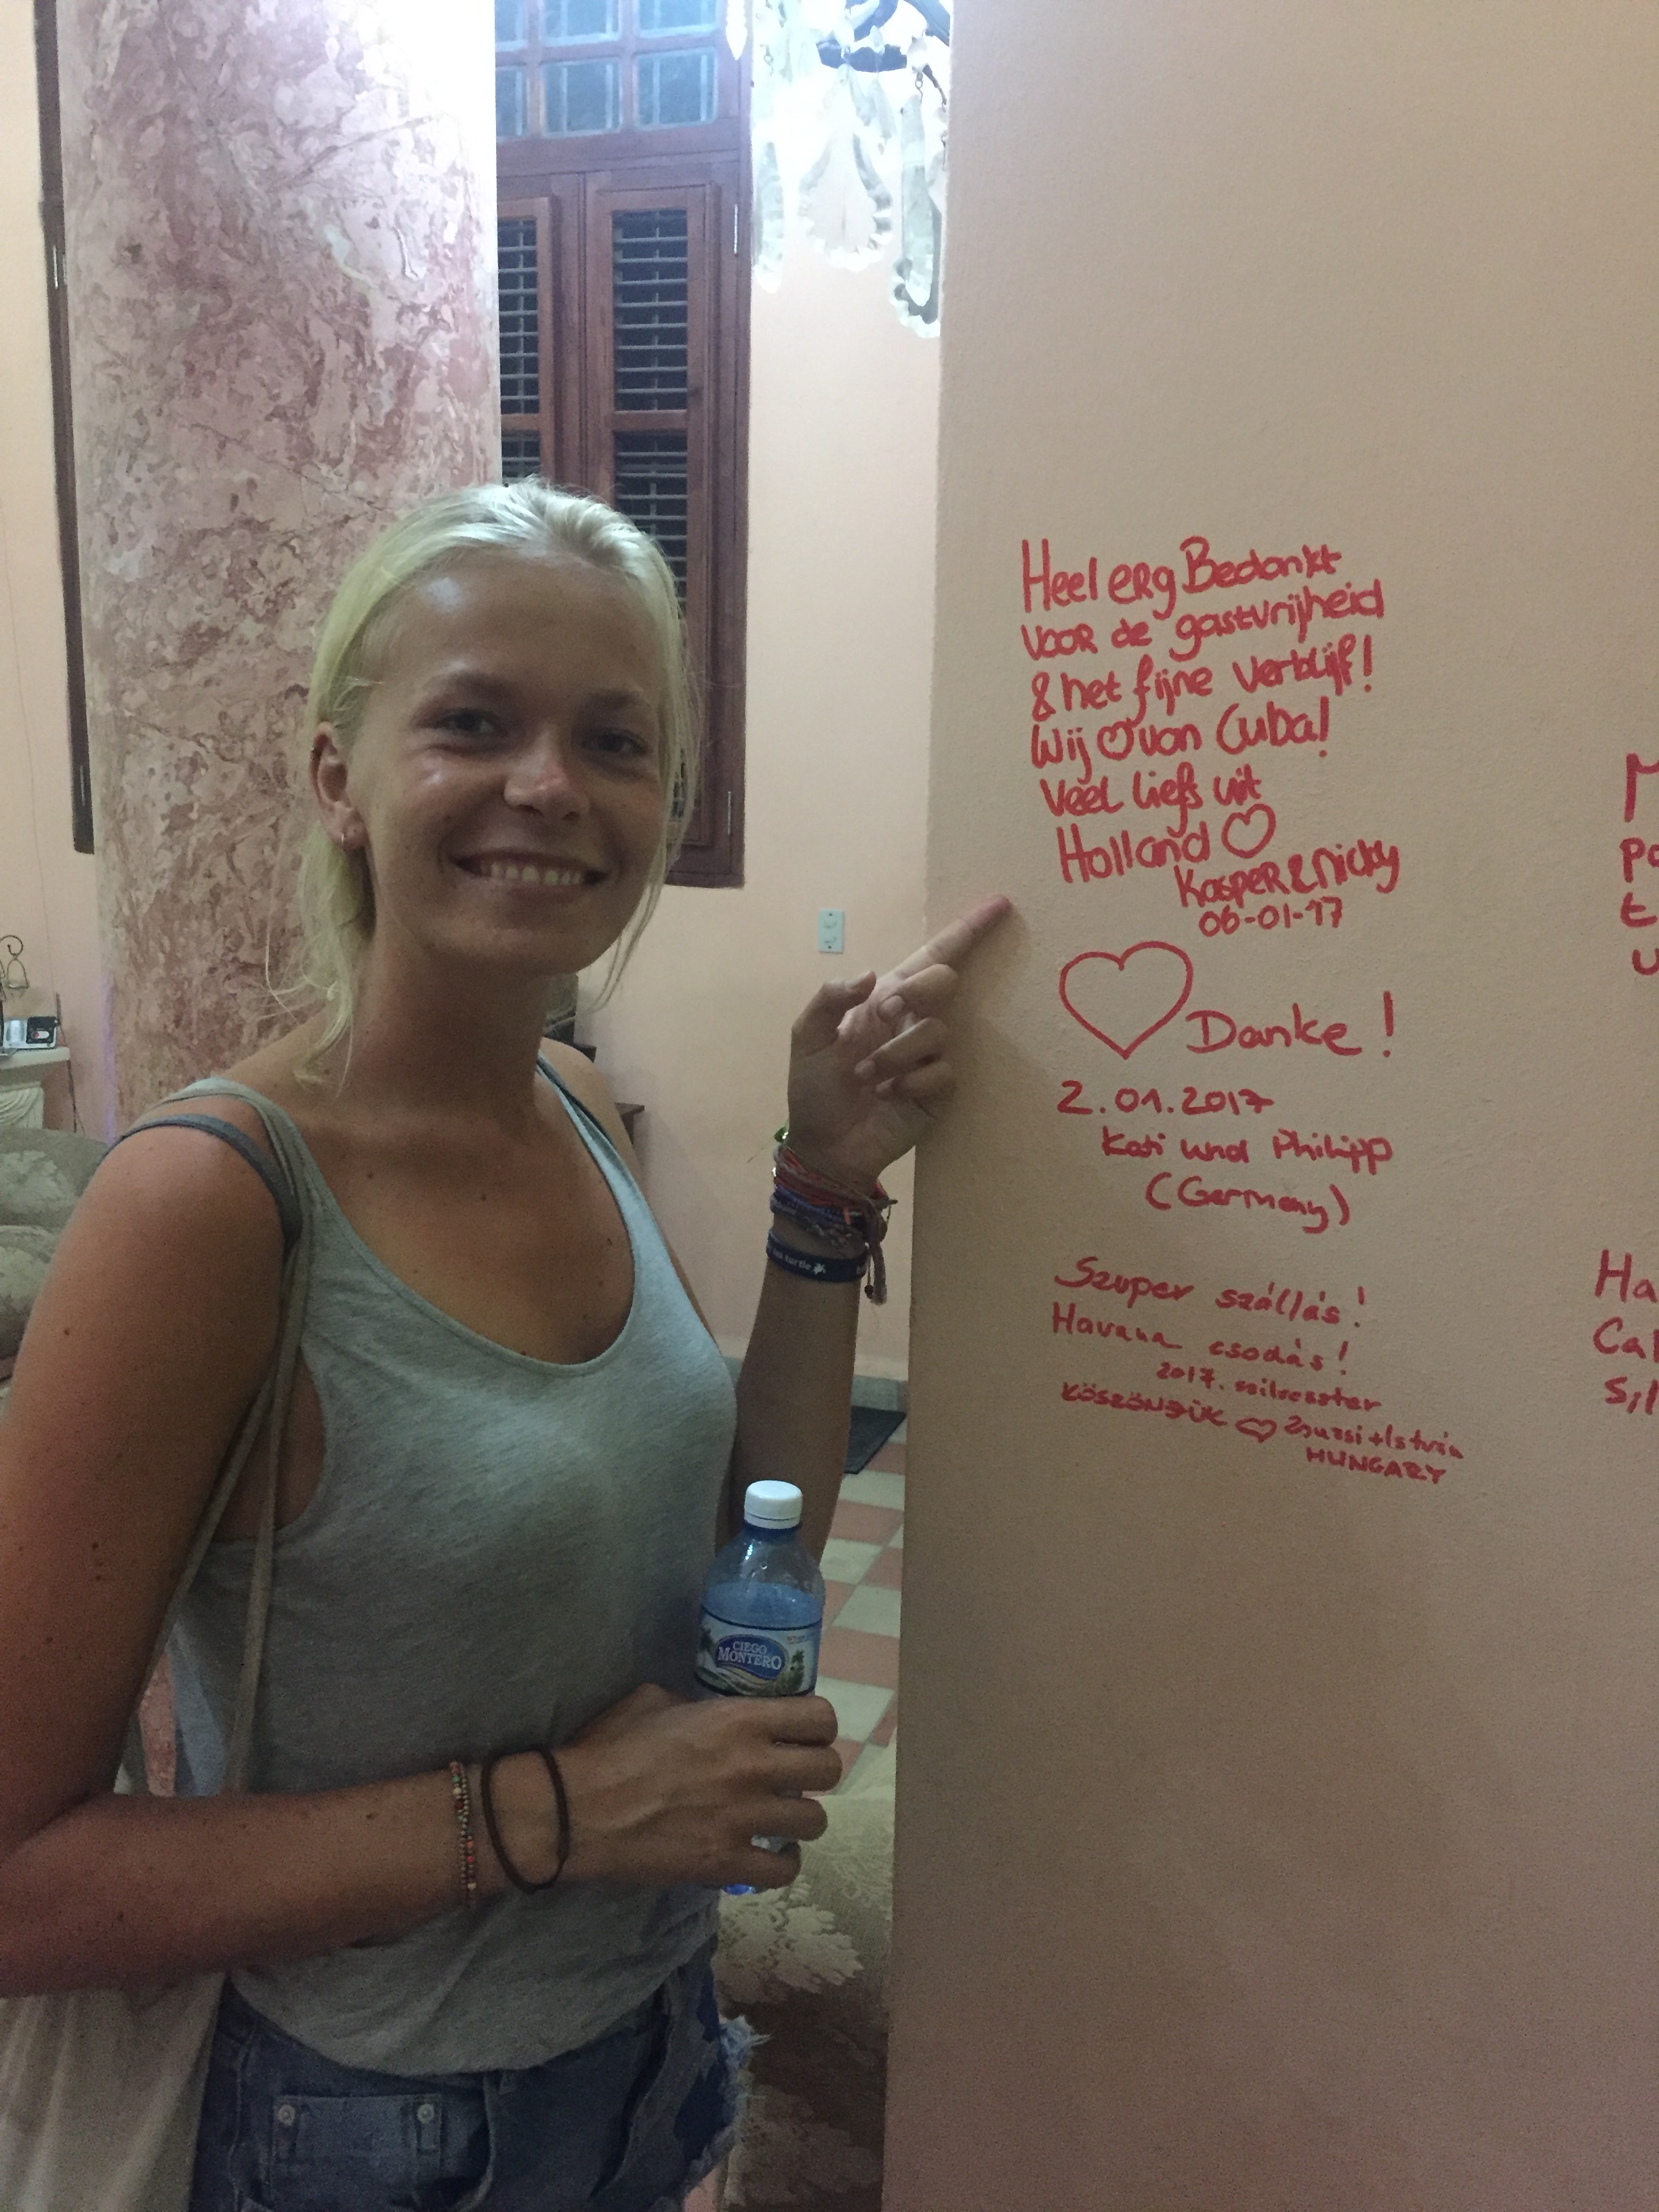 Heel erg Bedankt
voor de gastvrijheid
& het fijne verblijf!
Wij ♡ van Cuba!
Veel liefs uit
Holland ♡
Kasper & Nicky
06-01-17
♡ Danke!
2.01.2017
Kati und Philipp
(Germany)
Szuper szállás!
Havana csodás!
2017. szilveszter
KÖSZÖNJÜK ♡ Zsuzsi + István
HUNGARY
M
pa
t
u
Ha
Cal
Sil
turtle
CIEGO
MONTERO